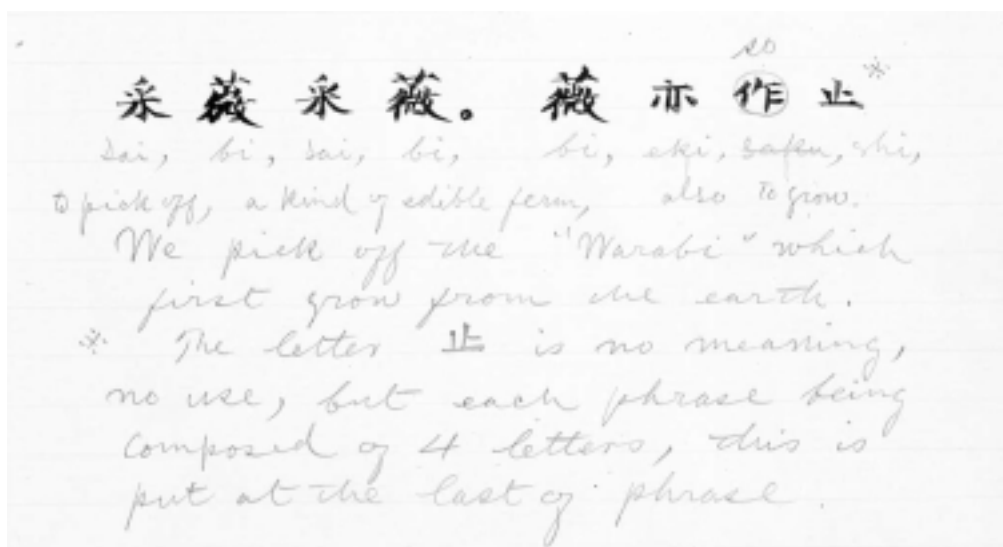 so
采薇采薇。薇亦作止※
sai, bi, sai, bi, bi, eki, saku, shi,
to pick off, a kind of edible fern, also to grow.
We pick off the "Warabi" which
first grow from the earth.
※ The letter 止 is no meaning,
no use, but each phrase being
composed of 4 letters, this is
put at the last of phrase.